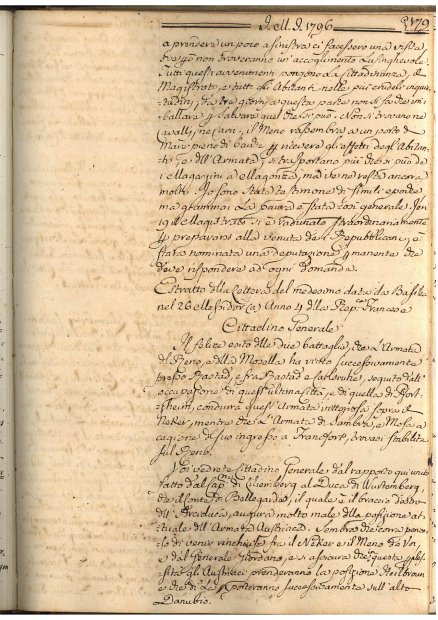 I. M. I. 1796 P. 179
a prendere un poco a sinistra ci facessero una visita,
non troveranno un accoglimento Lusinghevole.
Tutti questi avvenimenti pongono la Cittadinanza, il
Magistrato, e tutti gli Abitanti nelle più crudeli inquie-
tudini; da tre giorni a questa parte non si fa che im-
ballare, e salvare quel che si può. Non si trovano ne
Cavalli, ne Carri, il Meno rassembra a un porto di
Mare pieno di barche per ricevere gli effetti degli Abitan-
ti, e dell'Armata; si trasportano più che si può de
i Magazzini a Magonza, ma ve ne resta ancora
molti. Io sono stata testimone di simili epoche
ma giammai La paura è stata così generale. Jeri
19 il Magistrato si è radunato straordinariamente
per prepararsi alla venuta de i Repubblicani, è
stata nominata una deputazione permanente che
deve rispondere ad ogni domanda.
Estratto della Lettera del medesimo data da Basilea
nel 26 Messidor (a) Anno 4 della Rep. Francese
Cittadino Generale
Il felice esito delle due battaglie, che L'Armata
del Reno, e della Mosella ha vinto successivamente
presso Rastad, e fra Rastad e Carlsruhe, seguito dall'
occupazione di quest'ultima Città, e di quella di Pfort-
zheim, condurrà quest'Armata vittoriosa sopra il
Neker, mentre che L'Armata di Sambra, e Mosa a
cagione di suo ingresso a Francfort, trovasi stabilita
sul Reno.
Voi vedrete Cittadino Generale dal rapporto qui unito
fatto dal al Duca di Wurtemberg
che il Conte de Bellegarde, il quale è il braccio destro
dell'Arciduca, augura molto male della posizione at-
tuale dell'Armata Austriaca. Sembra che corra perico-
lo di venir rinchiusa fra il Neker e il Meno da Voi,
e dal Generale Jourdan, e si assicura che
gli Austriaci prenderanno la posizione Heilbraun
e che di là si porteranno successivamente sull'alto
Danubio.